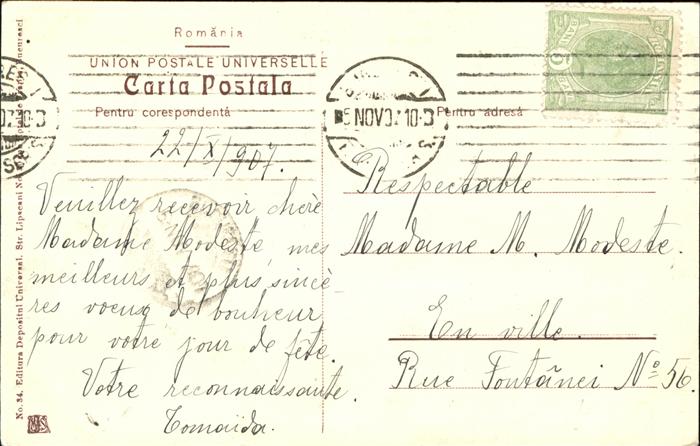 România
UNION POSTALE UNIVERSELLE
Carta Postala
Pentru corespondentă
Pentru adresă
5 NOV 07 10-3
5
BANI
ROMANIA
22/X/907.
Veuillez recevoir chère
Madame Modeste mes
meilleurs et plus sincè
res voeux de bonheur
pour votre jour de fête.
Votre reconnaissante.
Tomaida.
Respectable
Madame M. Modeste.
En ville.
Rue Fontănei No 56.
No. 34. Editura Depositul Universal. Str. Lipscani